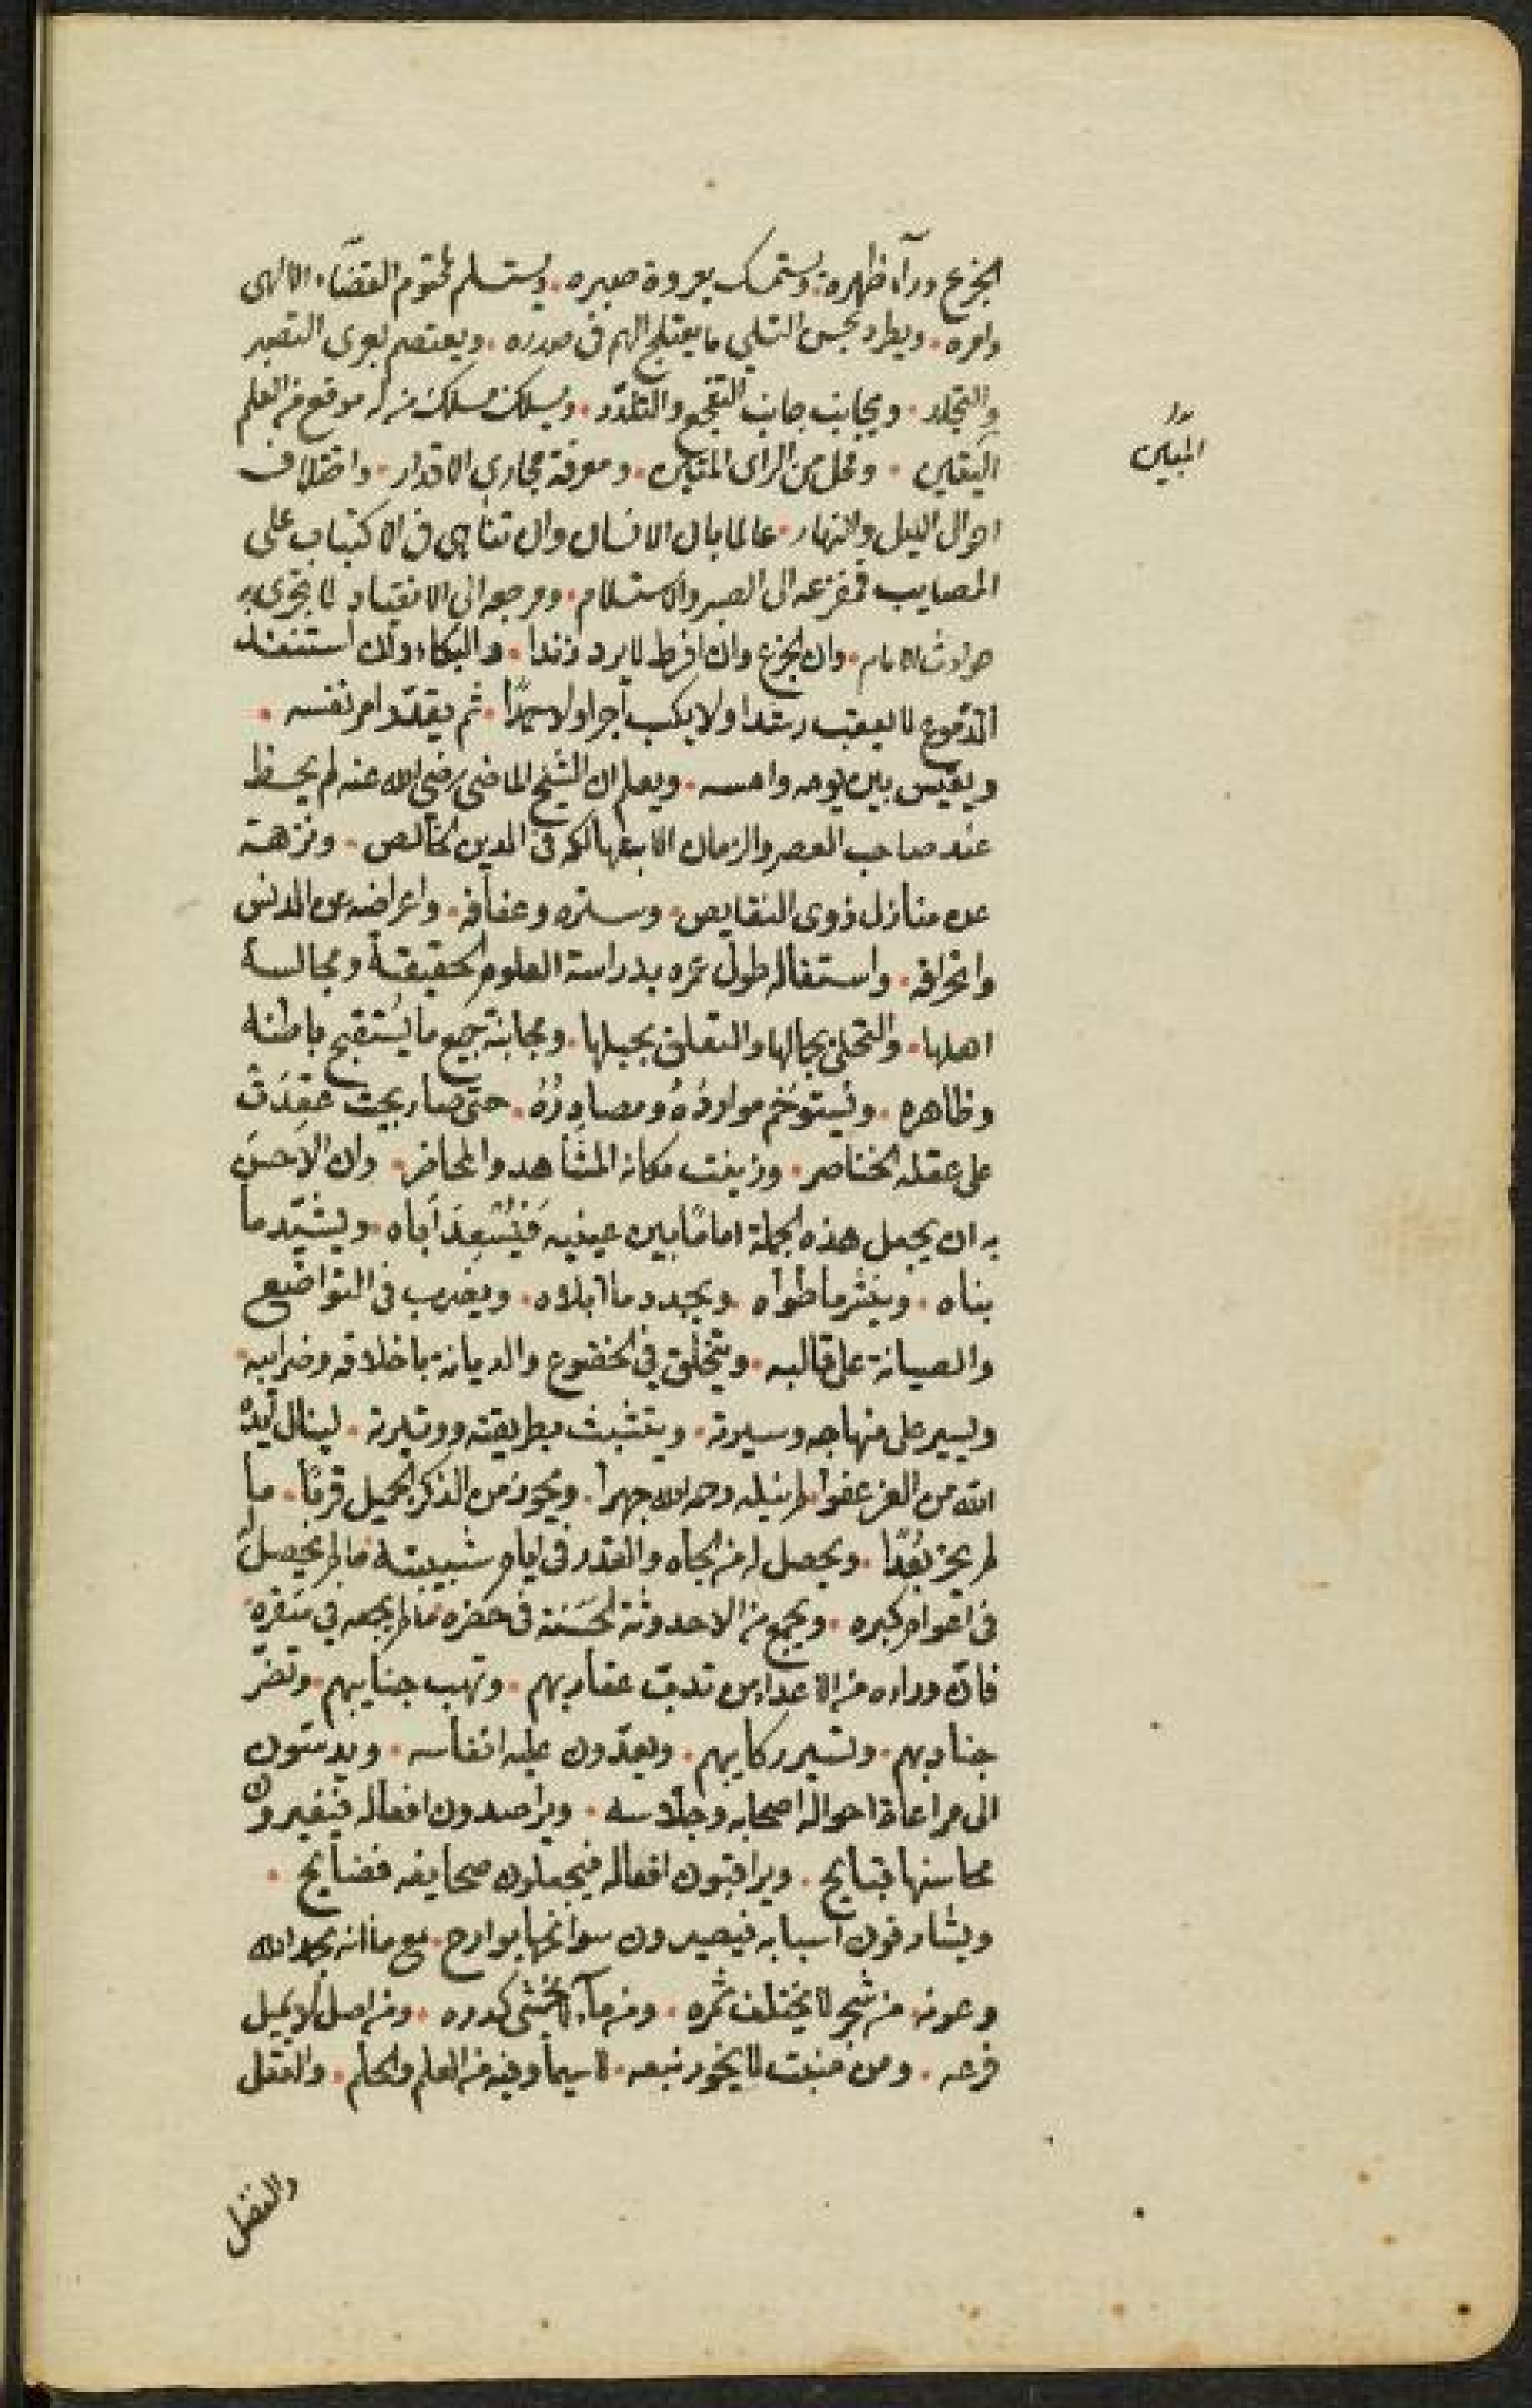 الجزع ورآء ظهره. ويستمسك بعروة صبره. ويستسلم لمحتوم القضآء الالهى
وامره. ويطرد بحسن التسلي ما يعتلج الهم فى صدره. ويعتصم بعرى التصبر
والتجلد. ويجانب جانب التفجع والتلدّد. ويسلك مسلك من له موقع من العلم
اليقين. ومحل من الراى المتين. ومعرفة مجارى الاقدار. واختلاف
المبين
احوال الليل والنهار. عالما بان الانسان وان تناهى فى الاكتياب على
المصايب فمفزعه الى الصبر والاستسلام. ومرجعه الى الانقياد لما تجرى به
حوادث الايام. وان الجزع وان افرط لا يرد زندا. والبكاء وان استنفد
الدموع لا يعقب رشدا ولا يكسب اجرا ولا حمدًا. ثم يقلد امر نفسه.
ويقيس بين يومه وامسه. ويعلم ان الشيخ الماضى رضى الله عنه لم يحظ
عند صاحب العصر والزمان الا بتهالكه فى الدين الخالص. ونزهته
عن منازل ذوى النقايص. وستره وعفافه. واعراضه عن الدنس
وانحرافه. واشتغاله طول عمره بدراسة العلوم الحقيقية ومجالسة
اهلها. والتحلى بجمالها والتعلق بحبلها. ومجانبة جميع ما يُستقبح باطنه
وظاهره. ويُستوخم مواردُهُ ومصادِرُهُ. حتى صار بحيث عقدت
على عقله الخناصر. وزينت مكانه المشاهد والمحاضر. وان الاحسن
به ان يجعل هذه الجملة امامًا بين عينيه فَيُسْعِدَ اباه. ويشيّد ما
بناه. وينشر ما طواه. ويجدد ما ابلاه. ويضرب فى التواضع
والصيانة على قالبه. ويتخلق فى الخضوع والديانة باخلاقه وضرايبه.
ويسير على منهاجه وسيرته. ويتشبث بطريقته ووتيرته. لينال
الله من العز عفوا ما لم ينله رحمه الله جهرا. ويحوز من الذكر الجميل قربًا. ما
لم يحز بُعْدًا. ويحصل له من الجاه والقدر فى ايام شبيبته ما لم يحصل
فى اعوام كبره. ويجمع من الاحدوثة الحَسَنة فى حضره ما لم يجمعه فى سَفَرِهِ
فانّ وراءه من الاعداء من تدبّ عقاربهم. وتهب جنايبهم. وتضرّ
جنادبهم. وتسير ركايبهم. ويعدّون عليه انفاسه. ويدسّون
الى مراعاة احواله اصحابه وجلّاسه. ويراصدون افعاله فيغيرون
محاسنها قبايح. ويراقبون افعاله فيجعلون صحايفه فضايح.
ويشارفون اسبابه فيصيرون سوانحها بوارح. مع ما انه بحمد الله
وعونه من شجر لا يختلف ثمره. ومن مآء لا يخشى كدره. ومن اصل لا يميل
فرعه. ومن منبت لا يخور نبعه. لا سيما وفيه من العلم والحلم. والعقل
والفضل